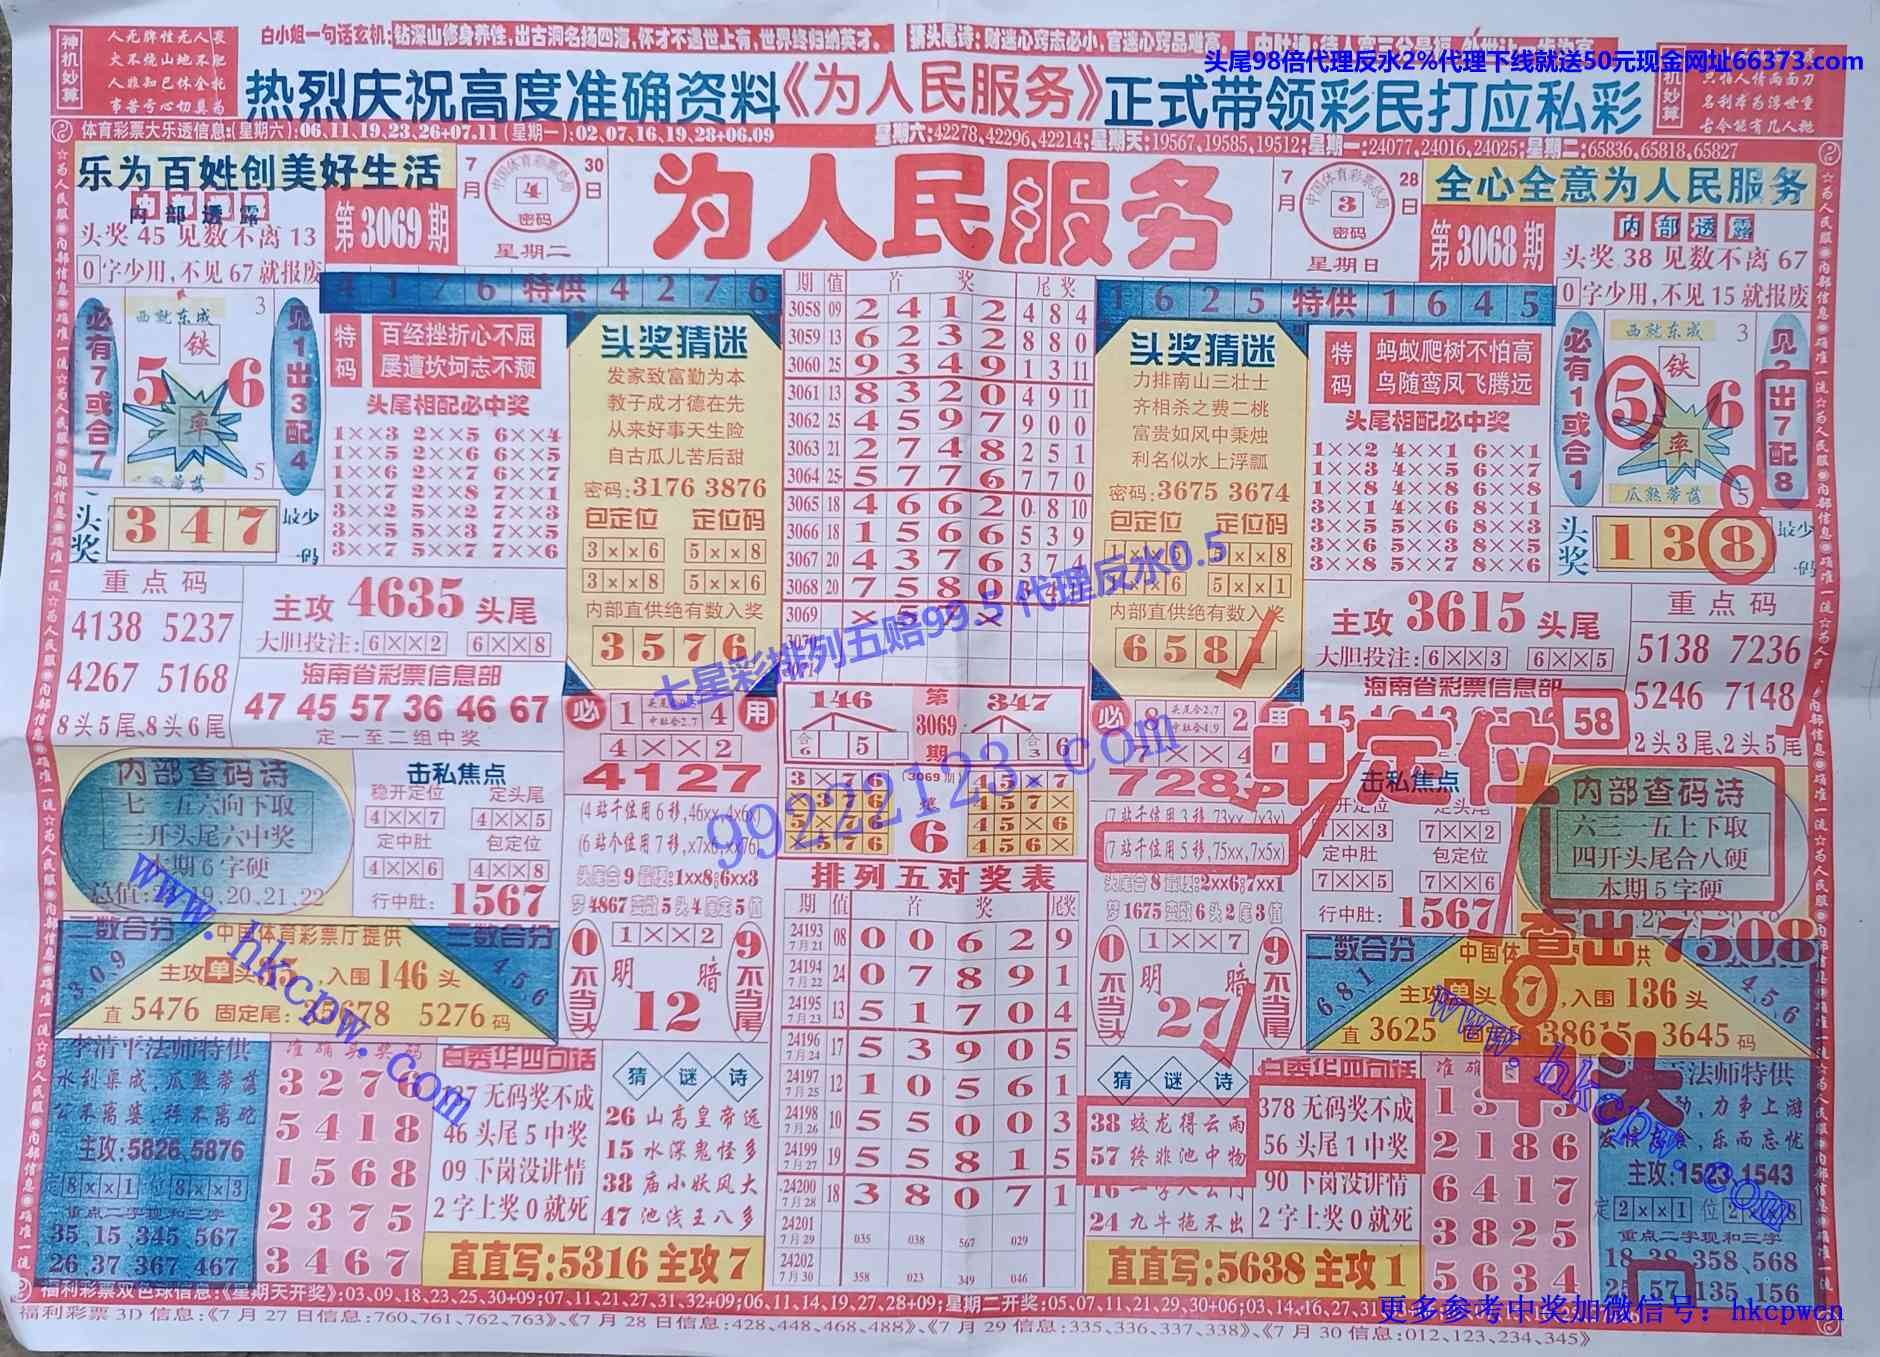 神机妙算
人无脾性无人畏
火不烧山地不肥
人非知己休全托
事苦号心切莫为
白小姐一句话玄机:钻深山修身养性,出古洞名扬四海,怀才不遇世上有,世界终归纳英才。
猜头尾诗:财迷心窍志必小,官迷心窍品难高。
头尾98倍代理反水2%代理下线就送50元现金网址66373.com
热烈庆祝高度准确资料《为人民服务》正式带领彩民打应私彩
体育彩票大乐透信息:(星期六):06,11,19,23,26+07,11(星期一):02,07,16,19,28+06,09
星期六:42278,42296,42214;星期天:19567,19585,19512;星期一:24077,24016,24025;星期二:65836,65818,65827
乐为百姓创美好生活
内部透露
头奖 45 见数不离 13
0字少用,不见 67 就报废
第3069期
7月30日
4
密码
星期二
为人民服务
7月28日
3
密码
星期日
第3068期
全心全意为人民服务
内部透露
头奖 38 见数不离 67
0字少用,不见 15 就报废
必有7或合7
西就东成
铁
3
5 6
率
5
见1出3配4
头奖 347 最少一码
4 1 7 6 特供 4 2 7 6
特码
百经挫折心不屈
屡遭坎坷志不颓
头尾相配必中奖
1××3 2××5 6××4
1××5 2××6 6××5
1××6 2××7 6××7
1××7 2××8 7××1
3××2 5××2 7××3
3××5 5××3 7××5
3××7 5××7 7××6
头奖猜迷
发家致富勤为本
教子成才德在先
从来好事天生险
自古瓜儿苦后甜
密码:3176 3876
包定位 定位码
3××6 5××8
3××8 5××6
内部直供绝有数入奖
3576
期 值 首奖 尾奖
3058 09 2 4 1 2 4 8 4
3059 13 6 2 3 2 8 8 0
3060 25 9 3 4 9 1 3 11
3061 13 8 3 2 0 4 9 11
3062 25 4 5 9 7 9 0 0
3063 21 2 7 4 8 2 5 1
3064 25 5 7 7 6 7 7 0
3065 18 4 6 6 2 0 8 10
3066 18 1 5 6 6 5 3 9
3067 20 4 3 7 6 3 7 4
3068 20 7 5 8 0
3069 × 5 7 ×
1 6 2 5 特供 1 6 4 5
头奖猜迷
力排南山三壮士
齐相杀之费二桃
富贵如风中秉烛
利名似水上浮瓢
密码:3675 3674
包定位 定位码
5××8
5××1
内部直供绝有数入奖
6581
特码
蚂蚁爬树不怕高
鸟随鸾凤飞腾远
头尾相配必中奖
1××2 4××1 6××1
1××3 4××5 6××5
1××8 4××8 6××8
3××1 4××6 8××1
3××5 5××6 8××3
3××6 5××3 8××5
3××8 5××7 8××6
必有1或合1
西就东成
铁
3
5 6
率
瓜熟蒂落
5
见2出7配8
头奖 138 最少一码
重点码
4138 5237
4267 5168
8头5尾、8头6尾
主攻 4635 头尾
大胆投注: 6××2 6××8
海南省彩票信息部
47 45 57 36 46 67
定一至二组中奖
七星彩排列五赔99.5 代理反水0.5
99222123.com
主攻 3615 头尾
大胆投注: 6××3 6××5
海南省彩票信息部
58
重点码
5138 7236
5246 7148
2头3尾、2头5尾
内部查码诗
七一五六向下取
三开头尾六中奖
本期6字硬
击私焦点
稳开定位 定头尾
4××7 4××5
定中肚 包定位
4××6 4××8
行中肚: 1567
必 1 4 用
4××2
4127
(4站千位用6移,46xx,4x6x)
(6站个位用7移,x7x6,xx76)
头尾合9最稳:1xx8;6xx3
梦4867变数5头4尾定5值
146
第3069期
347
合6 5
合3 6
3×76 (3069期) 45×7
×376 457×
5×76 45×6
×576 6 456×
必 8 2 用
7××4
中定位
(7站千位用3移,73xx,7x3x)
(7站千位用5移,75xx,7x5x)
头尾合8最稳:2xx6;7xx1
梦1675变数6头2尾3值
击私焦点
7××2
定中肚 包定位
7××5 7××6
行中肚: 1567
内部查码诗
六三一五上下取
四开头尾合八硬
本期5字硬
查出7508
二数合分 3、0、9
中国体育彩票厅提供
主攻单头 入围 146 头
直 5476 固定尾: 5276 码
三数合分 4、5、6
0不当头
1××2
明 暗
12
9不当尾
排列五对奖表
期 值 首奖 尾奖
24193 7月21 08 0 0 6 2 9
24194 7月22 24 0 7 8 9 1
24195 7月23 13 5 1 7 0 4
24196 7月24 17 5 3 9 0 5
24197 7月25 12 1 0 5 6 1
24198 7月26 10 5 5 0 0 3
24199 7月27 19 5 5 8 1 5
24200 7月28 18 3 8 0 7 1
24201 7月29 035 038 567 029
24202 7月30 358 023 349 046
0不当头
1××7
明 暗
27
9不当尾
二数合分 6、8、1
主攻单头 67,入围 136 头
直 3625 38615 3645 码
4、5、6
中头
李清平法师特供
水到渠成,瓜熟蒂落
公不离婆,秤不离砣
主攻:5826,5876
定 8××1 位 8××3
重点二字现和三字
35、15、345、567
26、37、367、467
准确头奖码
3276
5418
1568
2375
3467
白秀华四句话
无码奖不成
46 头尾 5 中奖
09 下岗没讲情
2 字上奖 0 就死
猜谜诗
26 山高皇帝远
15 水深鬼怪多
38 庙小妖风大
47 池浅王八多
直直写:5316 主攻 7
猜谜诗
38 蛟龙得云雨
57 终非池中物
24 九牛拖不出
白秀华四句话
378 无码奖不成
56 头尾 1 中奖
90 下岗没讲情
2 字上奖 0 就死
直直写:5638 主攻 1
2186
6417
3825
5634
法师特供
力争上游
乐而忘忧
主攻:1523,1543
定 2××1 位
重点二字现和三字
18、38、358、568
25、57、135、156
www.hkcpw.com
www.hkcpw.com
福利彩票双色球信息:《星期天开奖》:03,09,18,23,25,30+09;07,11,21,27,31,32+09;06,11,14,19,27,28+09;星期二开奖:05,07,11,21,29,30+06;03,14,16,27,31
福利彩票3D信息:《7月27日信息:760,761,762,763》、《7月28日信息:428,448,468,488》、《7月29信息:335,336,337,338》、《7月30信息:012,123,234,345》
更多参考中奖加微信号:hkcpwcn